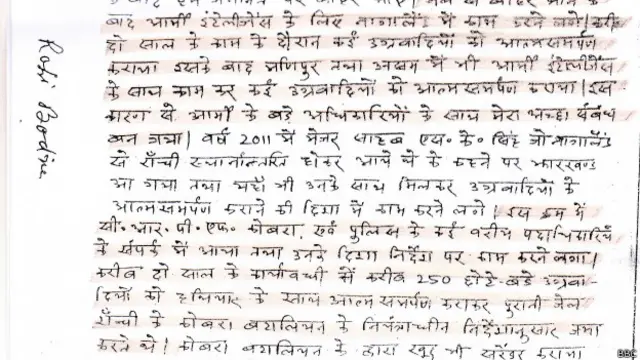 बाद आर्मी इंटेलीजेंस के लिए नागालैंड में काम करने लगे। करीब
दो साल के काम के दौरान कई उग्रवादियों को आत्मसमर्पण
कराया इसके बाद मणिपुर तथा असम में भी आर्मी इंटेलीजेंस
के साथ काम कर कई उग्रवादियों को आत्मसमर्पण कराया। इस
कारण से आर्मी के बड़े अधिकारियों के साथ मेरा अच्छा संबंध
बन गया। वर्ष 2011 में मेजर साहब एस. के. सिंह जो नागालैंड
से राँची स्थानान्तरित होकर आये थे के कहने पर झारखण्ड
आ गया तथा यहाँ भी उनके साथ मिलकर उग्रवादियों के
आत्मसमर्पण कराने की दिशा में काम करने लगे। इस क्रम में
सी. आर. पी. एफ. कोबरा, एवं पुलिस के कई वरीय पदाधिकारियों
के संपर्क में आया तथा उनके दिशा निर्देश पर काम करने लगा।
करीब दो साल के कार्यावधी में करीब 250 छोटे-बड़े उग्रवा-
दियों को हथियार के साथ आत्मसमर्पण कराकर पुरानी जेल
राँची के कोबरा बटालियन के नियंत्राधीन निर्देशानुसार जमा
करते थे। कोबरा बटालियन के द्वारा खुद भी सरेंडर कराया
Rabi Bodra
BBC